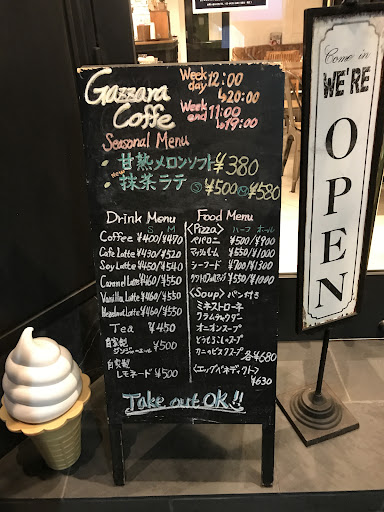 Gazzara
Coffe
Week day 12:00
↳20:00
Week end 11:00
↳19:00
Seasonal Menu
・甘熟メロンソフト¥380
・New 抹茶ラテ Ⓢ¥500 Ⓜ¥580
Drink Menu
S M
Coffee ¥400/¥470
Cafe Latte ¥430/¥520
Soy Latte ¥450/¥540
Caramel Latte ¥460/¥550
Vanilla Latte ¥460/¥550
Hazelnut Latte ¥460/¥550
Tea ¥450
自家製
ジンジャーエール ¥500
自家製
レモネード ¥500
Food Menu
<Pizza> ハーフ ホール
ペパロニ ¥500/¥900
マッシュルーム ¥550/¥1000
シーフード ¥700/¥1300
¥550/¥1000
<Soup> パン付き
ミネストローネ
クラムチャウダー
オニオンスープ
とうもろこしのスープ
オニオンスープ 各¥680
<エッグベネディクト>
¥630
Take out OK!!
Come in
WE'RE
OPEN